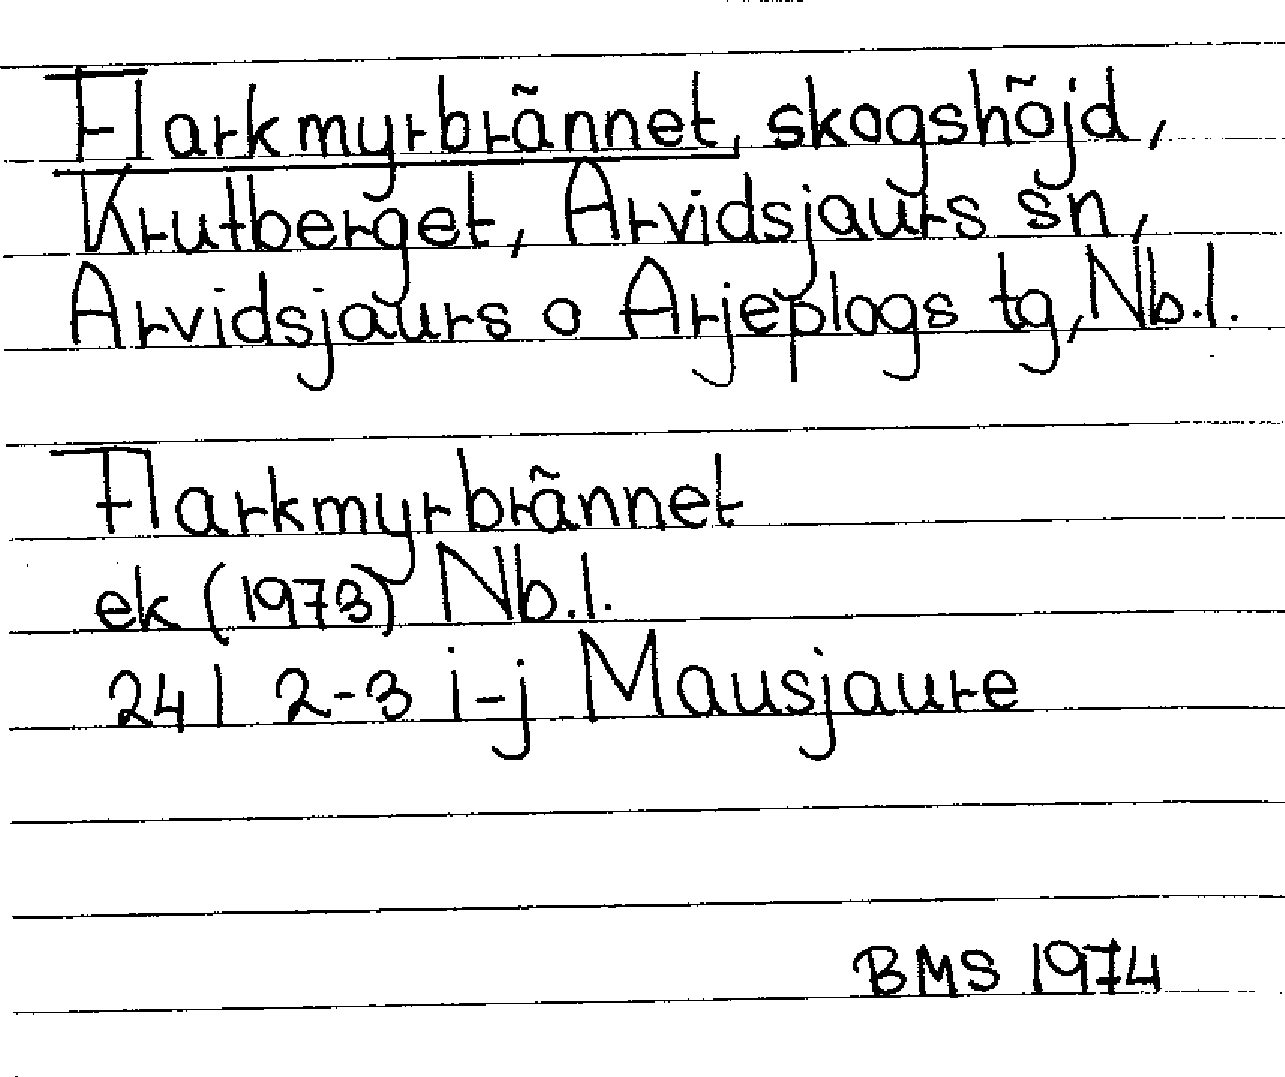 Flarkmyrbrännet, skogshöjd,
Krutberget, Arvidsjaurs sn,
Arvidsjaurs o Arjeplogs tg, Nb.l.
Flarkmyrbrännet
ek (1973) Nb.l.
24 I 2-3 i-j Mausjaure
BMS 1974